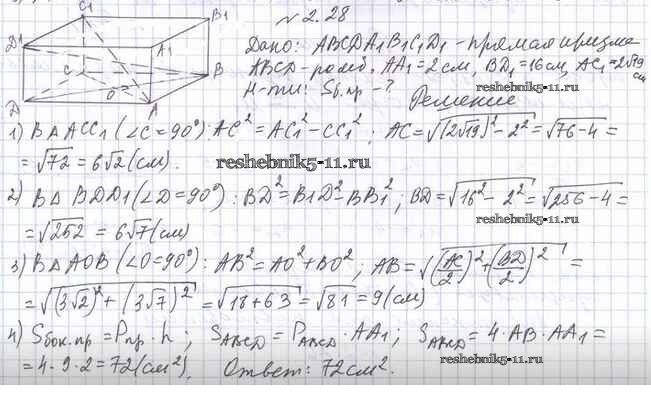 № 2.28
Дано: ABCDA1B1C1D1 - прямая призма
ABCD - ромб. AA1 = 2 см, BD1 = 16 см, AC1 = 2√19 см
Н-ти: Sб.пр - ?
Решение
reshebnik5-11.ru
1) В △ ACC1 (∠C = 90°): AC² = AC1² - CC1²; AC = √((2√19)² - 2²) = √(76 - 4) =
= √72 = 6√2 (см).
reshebnik5-11.ru
2) В △ BDD1 (∠D = 90°): BD² = B1D² - BB1²; BD = √(16² - 2²) = √(256 - 4) =
reshebnik5-11.ru
= √252 = 6√7 (см)
3) В △ AOB (∠O = 90°): AB² = AO² + BO²; AB = √((AC/2)² + (BD/2)²) =
= √((3√2)² + (3√7)²) = √(18 + 63) = √81 = 9 (см)
4) Sбок.пр = Pпр · h; SABCD = PABCD · AA1; SABCD = 4 · AB · AA1 =
= 4 · 9 · 2 = 72 (см²). Ответ: 72 см².
reshebnik5-11.ru
C1
B1
D1
A1
C
B
D
O
A